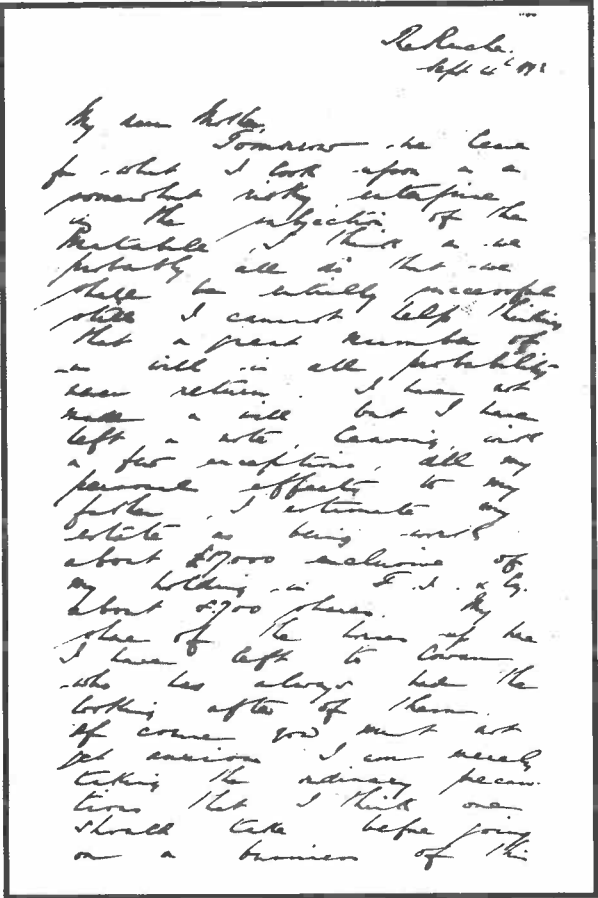 Sept 4th
My dear Mother,
Tomorrow we leave
for what I look upon as a
somewhat risky enterprise
in the subjection of the
Matabele, I think as we
probably all do that we
shall be entirely successful
still I cannot help thinking
that a great number of
us will in all probability
never return. I have not
made a will but I have
left a note leaving, with
a few exceptions, all my
personal effects to my
father, I estimate my
estate as being worth
about £17,000 exclusive of
my holding in F. I. & Co.
about 8700 shares. My
share of the horses up here
I have left to Cowan
who has always had the
looking after of them.
Of course you must not
get anxious I am merely
taking the ordinary precau-
tions that I think one
should take before going
on a business of this